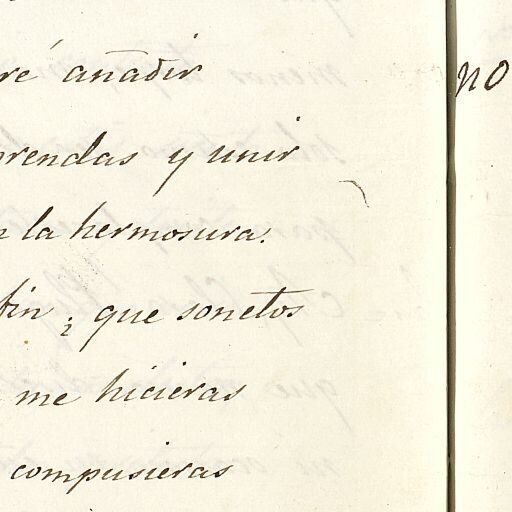 ré añadir
prendas y unir
n la hermosura.
fin ¿ que sonetos
me hicieras
compusieras
no